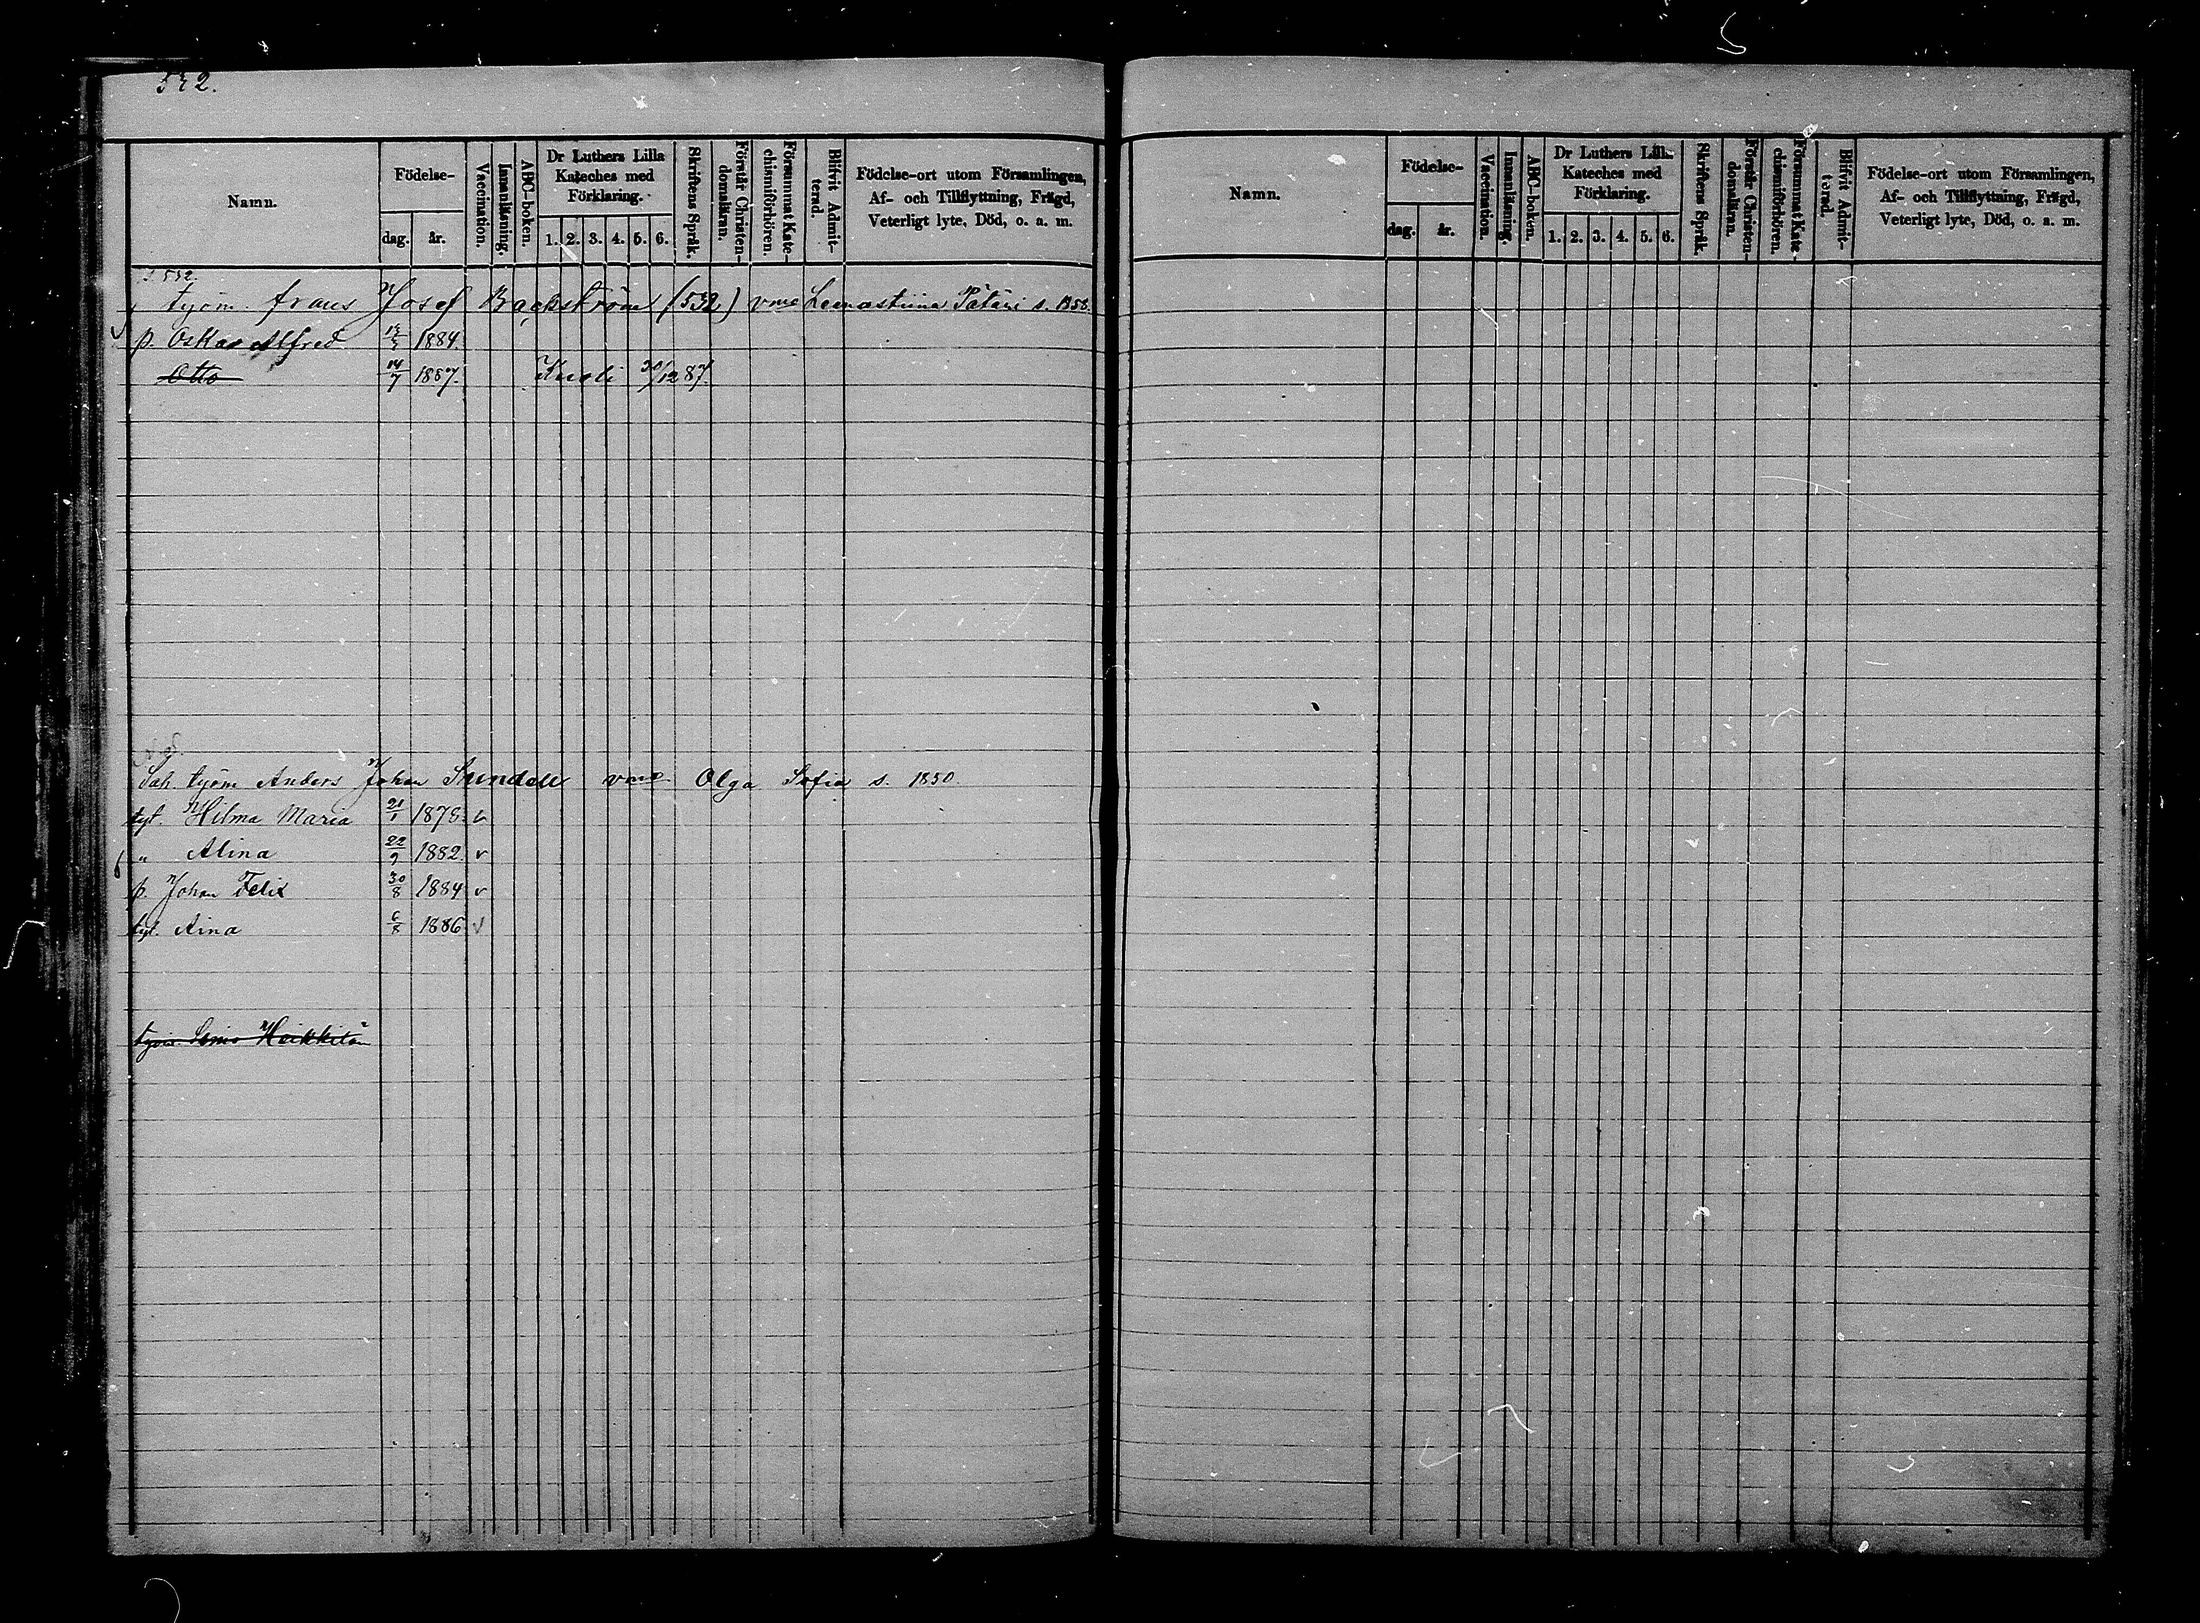 532.
Namn.
Födelse-
dag. år.
Vaccination.
Innanläsning.
ABC-boken.
Dr Luthers Lilla
Kateches med
Förklaring.
1. 2. 3. 4. 5. 6.
Skriftens Språk.
Förstår Christen-
domsläran.
Försummat Kate-
chismiförhören.
Blifvit Admit-
terad.
Födelse-ort utom Församlingen,
Af- och Tillflyttning, Frägd,
Veterligt lyte, Död, o. a. m.
S. 532.
työm. frans Josef Backström (532) vmo Leenastiina s. 1858.
p. Oskar Alfred 1884.
Otto 14/7 1887. Kuoli 30/12 87.
työm Anders Johan Sundell vmo Olga Sofia s. 1850.
tyt. Hilma Maria 21/1 1878. v
" Alina 22/9 1882. v
p. Johan Felix 30/8 1884 v
tyt. Aina 6/8 1886 v
Namn.
Födelse-
dag. år.
Vaccination.
Innanläsning.
ABC-boken.
Dr Luthers Lilla
Kateches med
Förklaring.
1. 2. 3. 4. 5. 6.
Skriftens Språk.
Förstår Christen-
domsläran.
Försummat Kate-
chismiförhören.
Blifvit Admit-
terad.
Födelse-ort utom Församlingen,
Af- och Tillflyttning, Frägd,
Veterligt lyte, Död, o. a. m.